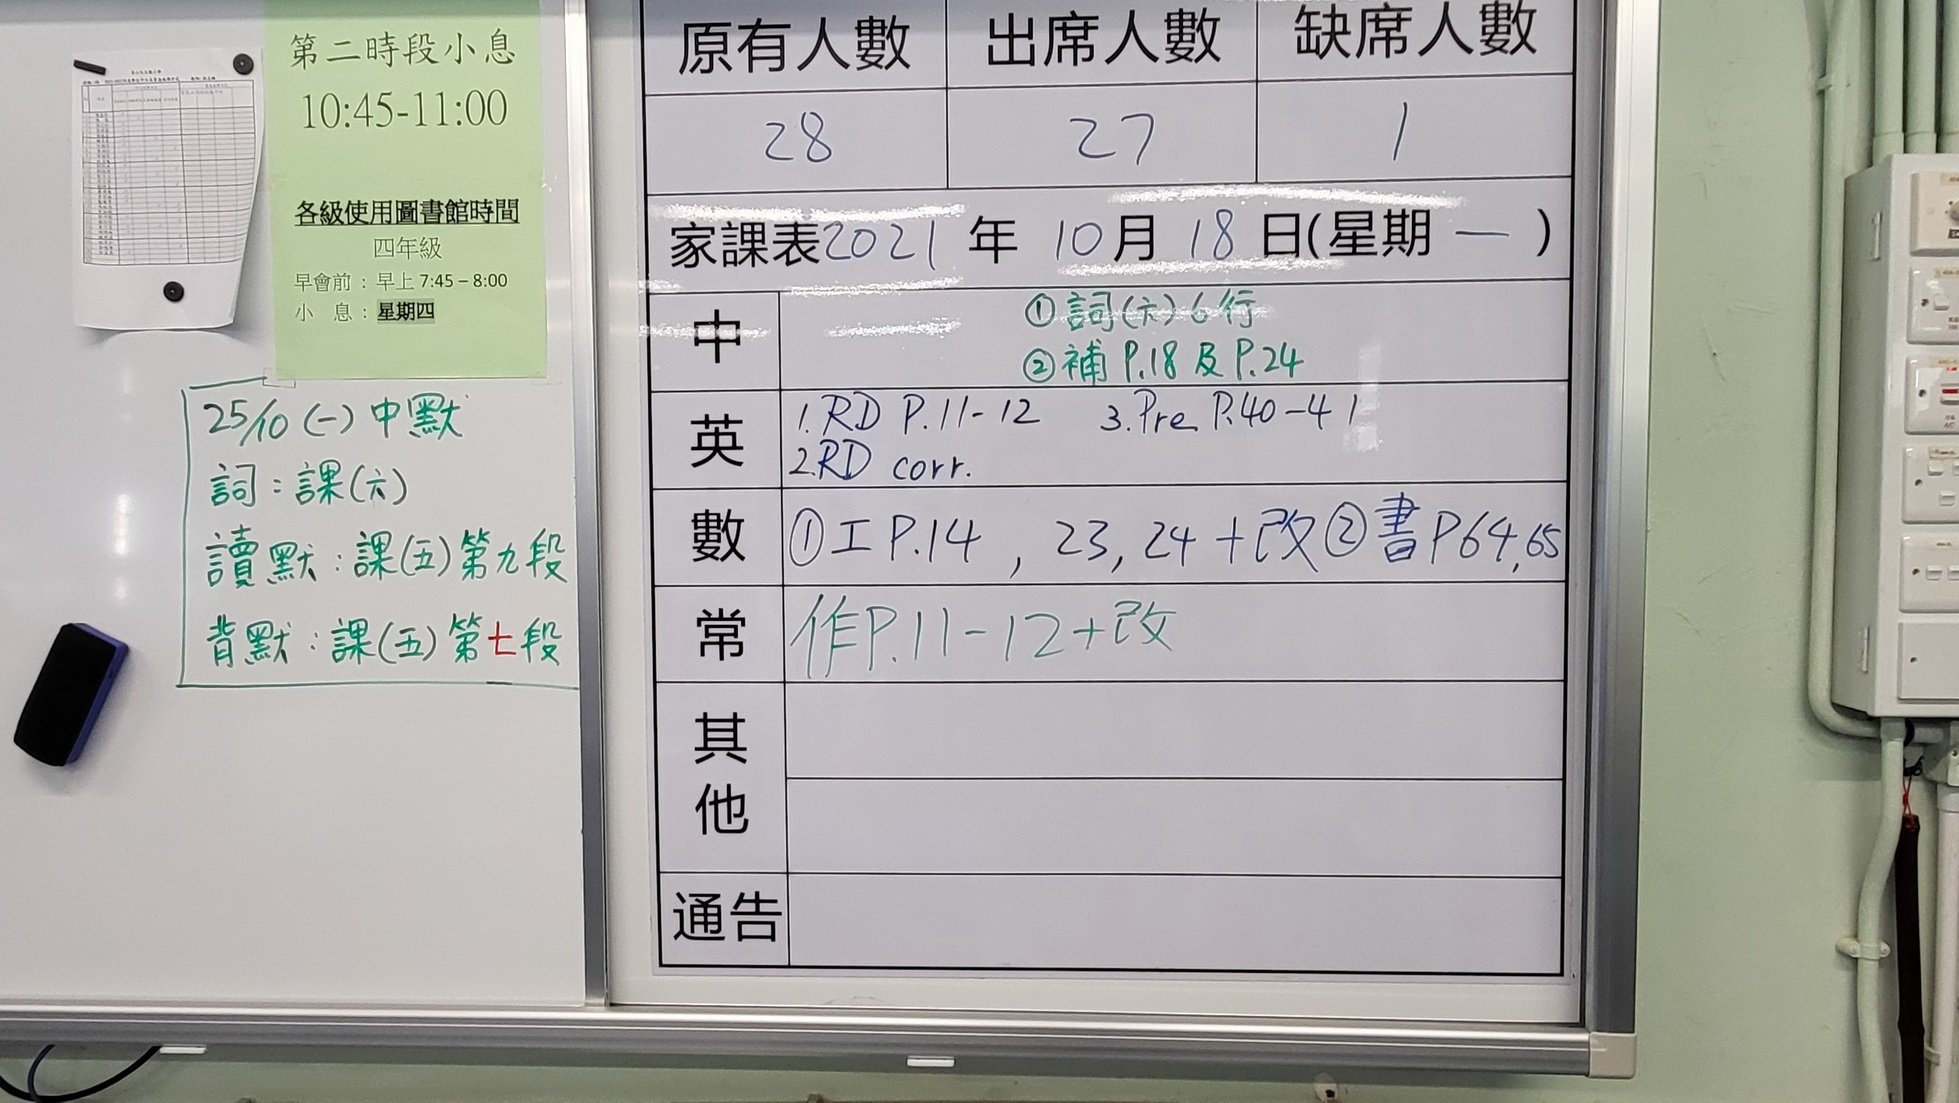 第二時段小息
10:45-11:00
各級使用圖書館時間
四年級
早會前：早上 7:45 – 8:00
小 息：星期四
25/10 (一) 中默
詞：課(六)
讀默：課(五)第九段
背默：課(五)第七段
原有人數 出席人數 缺席人數
28 27 1
家課表2021 年 10月 18 日(星期 一 )
中 ①詞(六)6行
②補 P.18 及 P.24
英 1.RD P.11-12 3.Pre P.40-41
2.RD corr.
數 ①工 P.14 , 23, 24 + 改 ②書 P64,65
常 作P.11-12+改
其他
通告